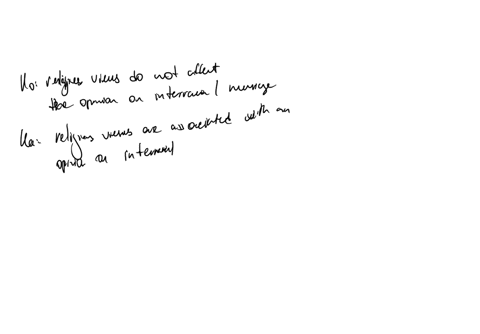 Ho: religious views do not affect
the opinion on interracial marriage
Ha: religious views are associated with an
opinion on interracial